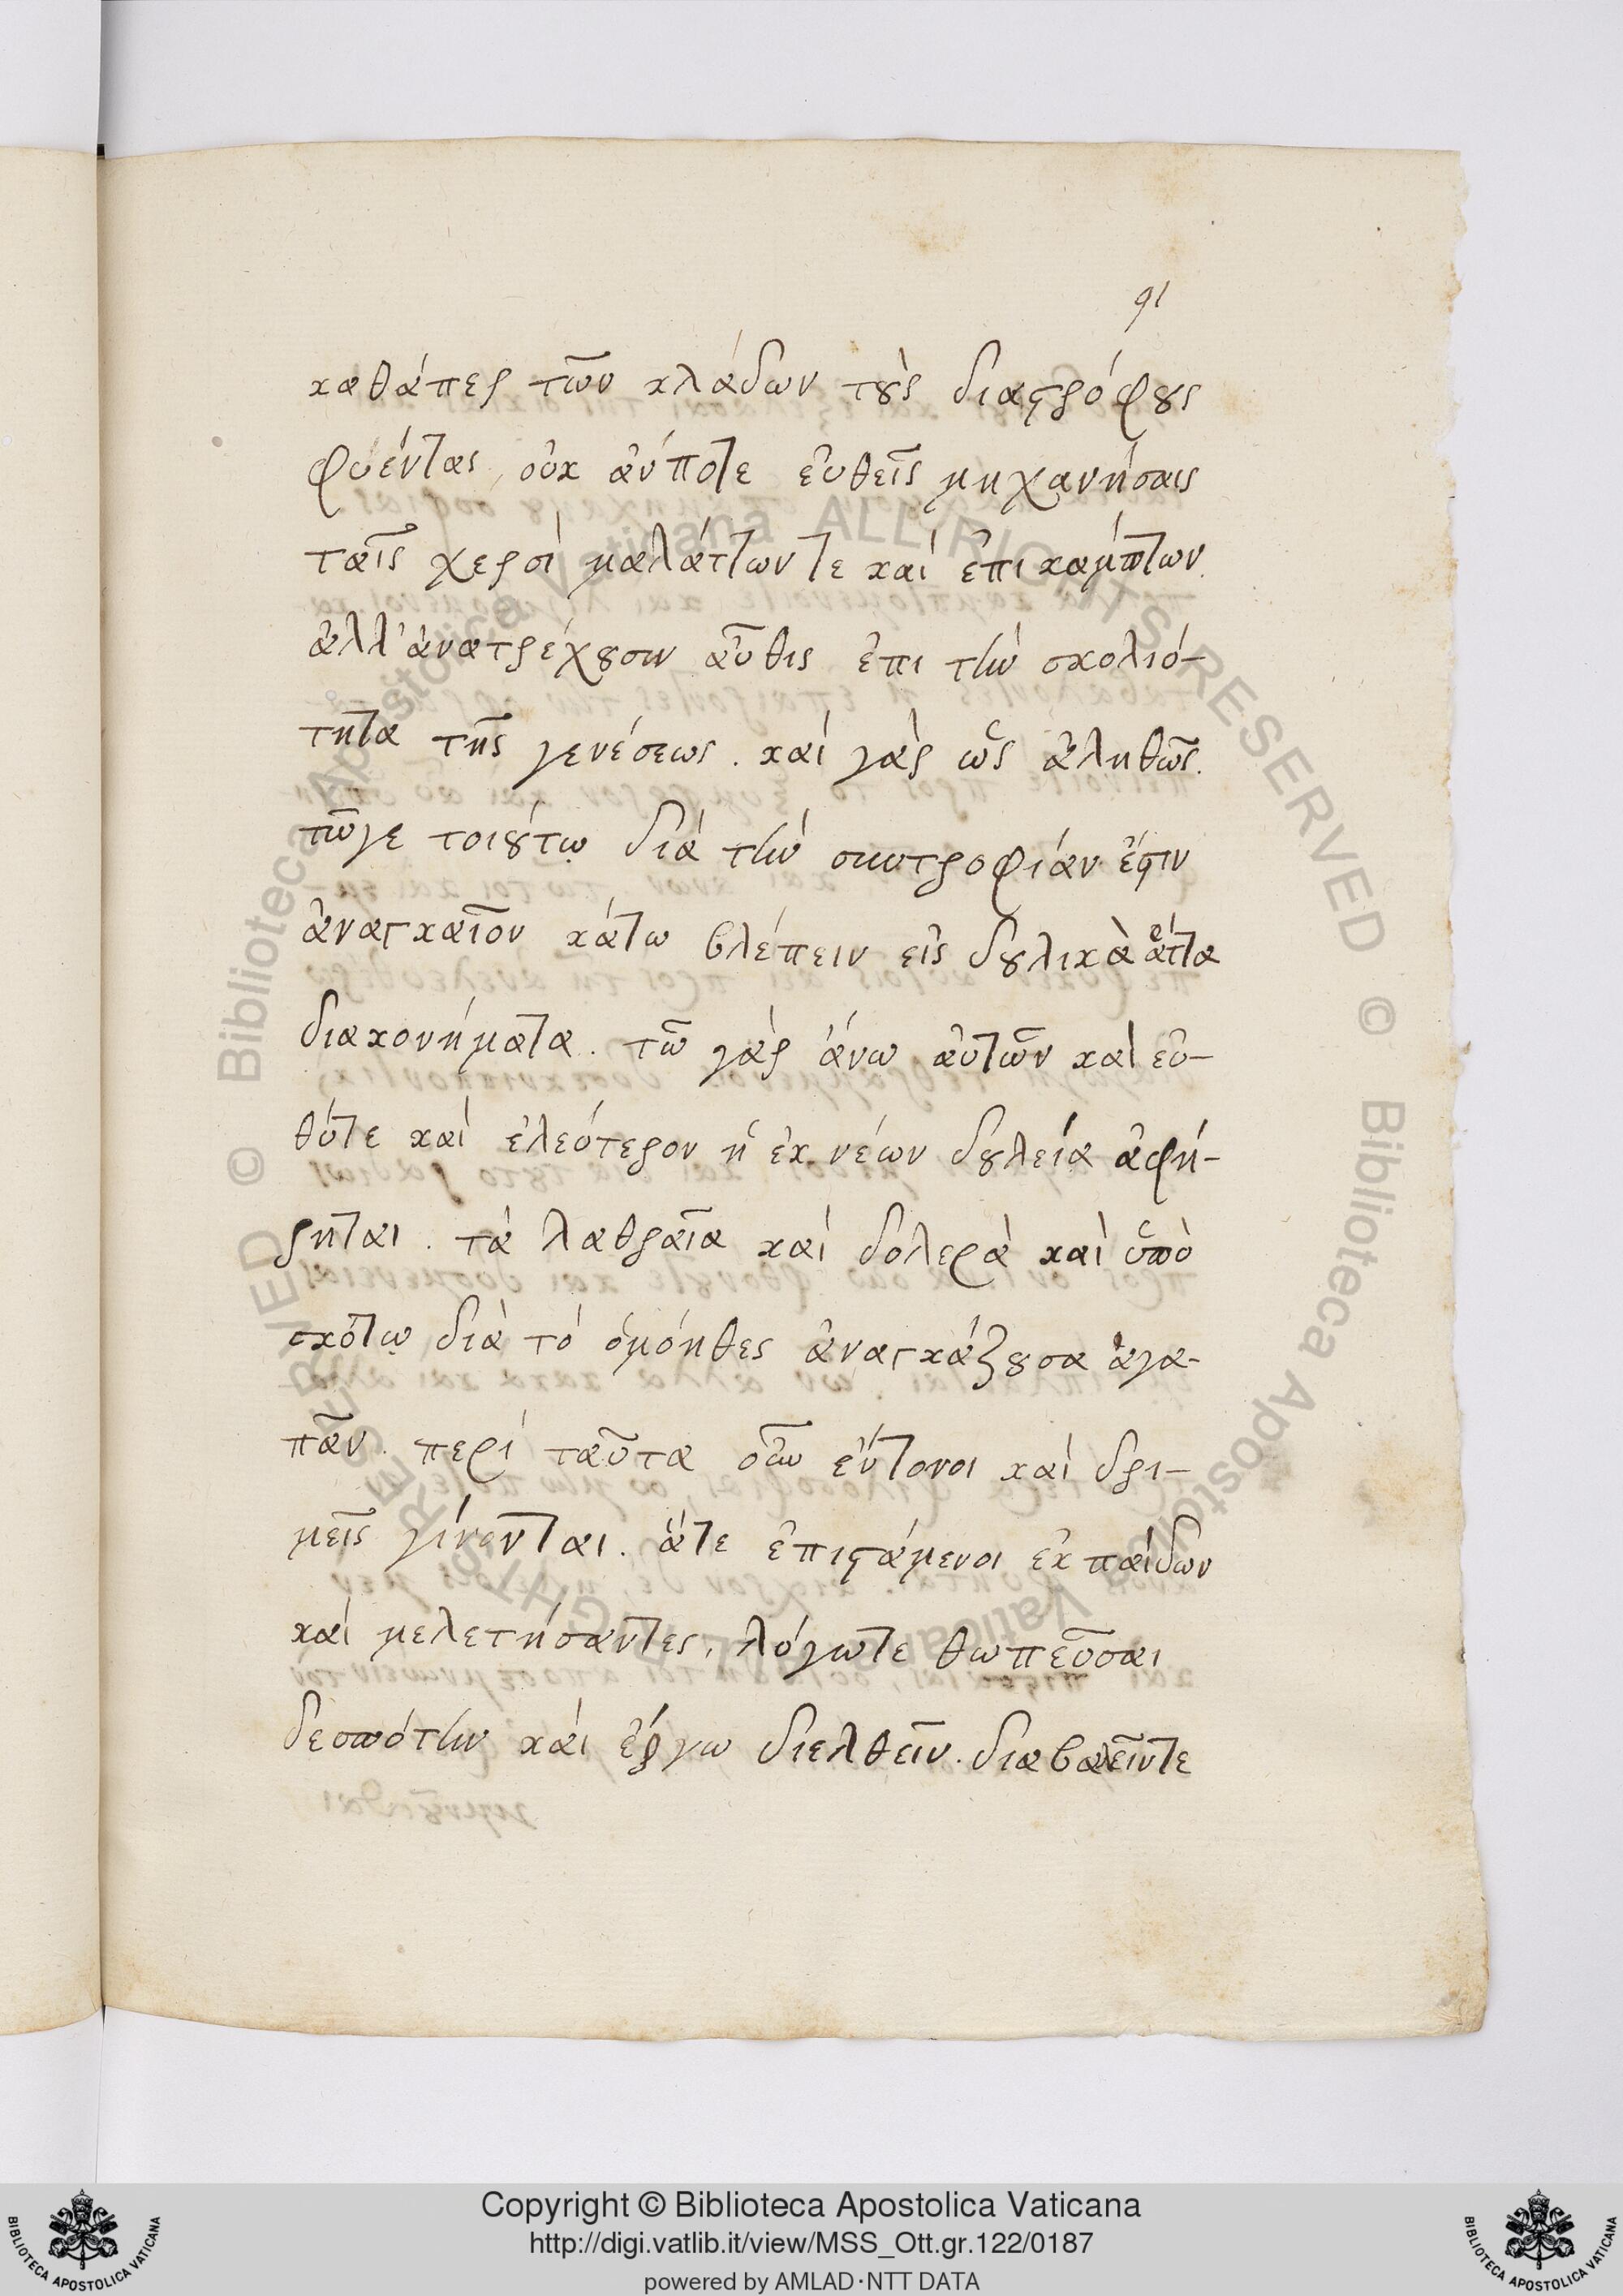 91
καθάπερ τῶν κλάδων τοὺς διαστρόφους
φυέντας, οὐκ ἀνποτε εὐθεῖς μηχανήσαις
ταῖς χερσὶ μαλάττων τε καὶ ἐπικάμπτων.
ἀλλ' ἀνατρέχουσιν αὖθις ἐπι τὴν σκολιό-
τητα τῆς γενέσεως. καὶ γὰρ ὡς ἀληθῶς.
τῶγε τοιούτῳ διὰ τὴν σκυτροφίαν ἐστιν
ἀναγκαῖον κάτω βλέπειν εἰς δουλικὰ ἄττα
διακονήματα. τῶ γὰρ ἄνω αὐτῶν καὶ εὐ-
θύτε καὶ ἐλεότερον ἡ ἐκ νέων δουλεία ἀφή-
ρηται. τὰ λαθραῖα καὶ δολερὰ καὶ ὑπὸ
σκότῳ διὰ τὸ ὁμόηθες ἀναγκάζουσα ἀγα-
πᾶν. περὶ ταῦτα οὖν εὔτονοι καὶ δρι-
μεῖς γίνονται. ἅτε ἐπιστάμενοι ἐκ παίδων
καὶ μελετήσαντες, λόγωτε θωπεῦσαι
δεσπότην καὶ ἔργω διελθεῖν. διαβαλεῖντε
Copyright © Biblioteca Apostolica Vaticana
http://digi.vatlib.it/view/MSS_Ott.gr.122/0187
powered by AMLAD·NTT DATA
BIBLIOTECA APOSTOLICA VATICANA
BIBLIOTECA APOSTOLICA VATICANA
© Biblioteca Apostolica Vaticana ALL RIGHTS RESERVED © Biblioteca Apostolica Vaticana ALL RIGHTS RESERVED